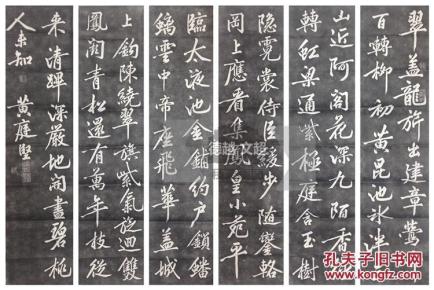 翠蓋龍旂出建章鶯
百轉柳初黃昆池冰泮
山近阿閣花深九陌香
轉虹梁通紫極庭含玉樹
隱霓裳侍臣緩步隨鑾輅
岡上應看集鳳皇小苑平
臨太液池金鋪約戶鎖蟠
螭雲中帝座飛華蓋城
上鈎陳繞翠旗紫氣旋迴雙
鳳闕青松還有萬年枝從
来清蹕深嚴地開盡碧桃
人未知 黃庭堅